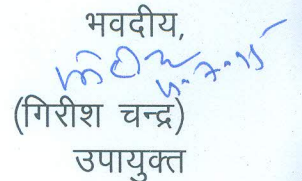 भवदीय,
(गिरीश चन्द्र)
उपायुक्त